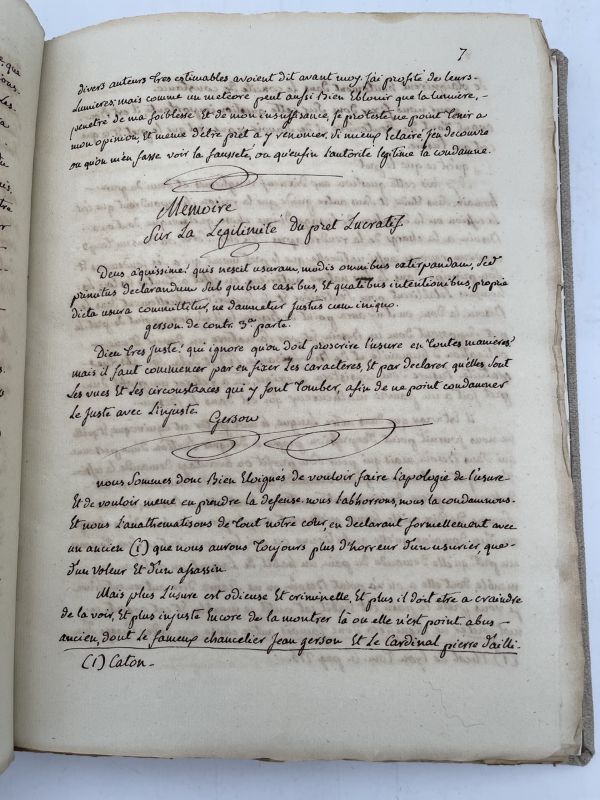 7
divers auteurs tres estimables avoient dit avant moy. J'ai profité de leurs-
Lumieres: mais comme un meteore peut aussi Bien Eblouir que la lumière, -
penetré de ma foiblesse Et de mon insuffisance, je proteste ne point tenir a
mon opinion, Et meme d'être pret a y renoncer, Si mieux Eclairé j'en decouvre
ou qu'on m'en fasse voir la fausseté, ou qu'enfin l'autorité legitime la condamne.
Memoire
Sur La Legitimité du pret Lucratif
Deus aquissime! quis nescit usuram, modis omnibus extirpandam, Sed
primitus declarandum Sub quibus casibus, Et qualibus intentionibus, propria
dicta usura committitur, ne damnetur Justus cum iniquo.
gerson. de contr. 3e parte.
Dieu tres Juste! qui ignore qu'on doit proscrire l'usure en toutes manieres
mais il faut commencer par en fixer Les caractères, Et par declarer qu'elles Sont
Les vues Et Les circonstances qui y font tomber, afin de ne point condamner
Le Juste avec L'injuste
Gerson
nous Sommes donc Bien Eloignés de vouloir faire l'apologie de l'usure-
Et de vouloir meme en prendre la defense. nous l'abhorrons, nous la condamnons.
Et nous l'anathematisons de tout notre cœur, en declarant formellement avec
un ancien (1) que nous aurons toujours plus d'horreur d'un usurier, que-
d'un voleur Et d'un assassin.
Mais plus l'usure est odieuse Et criminelle, Et plus il doit etre a craindre
de la voir, Et plus injuste Encore de la montrer là ou elle n'est point. abus -
ancien, dont le fameux chancelier Jean gerson Et Le Cardinal pierre d'ailli-
(1) Caton-